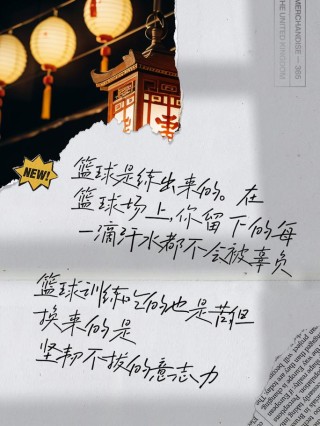 MERCHANDISE — 365
THE UNITED KINGDOM
NEW!
篮球是练出来的。在
篮球场上,你留下的每
一滴汗水都不会被辜负
篮球训练吃的也是苦但
换来的是
坚韧不拔的意志力